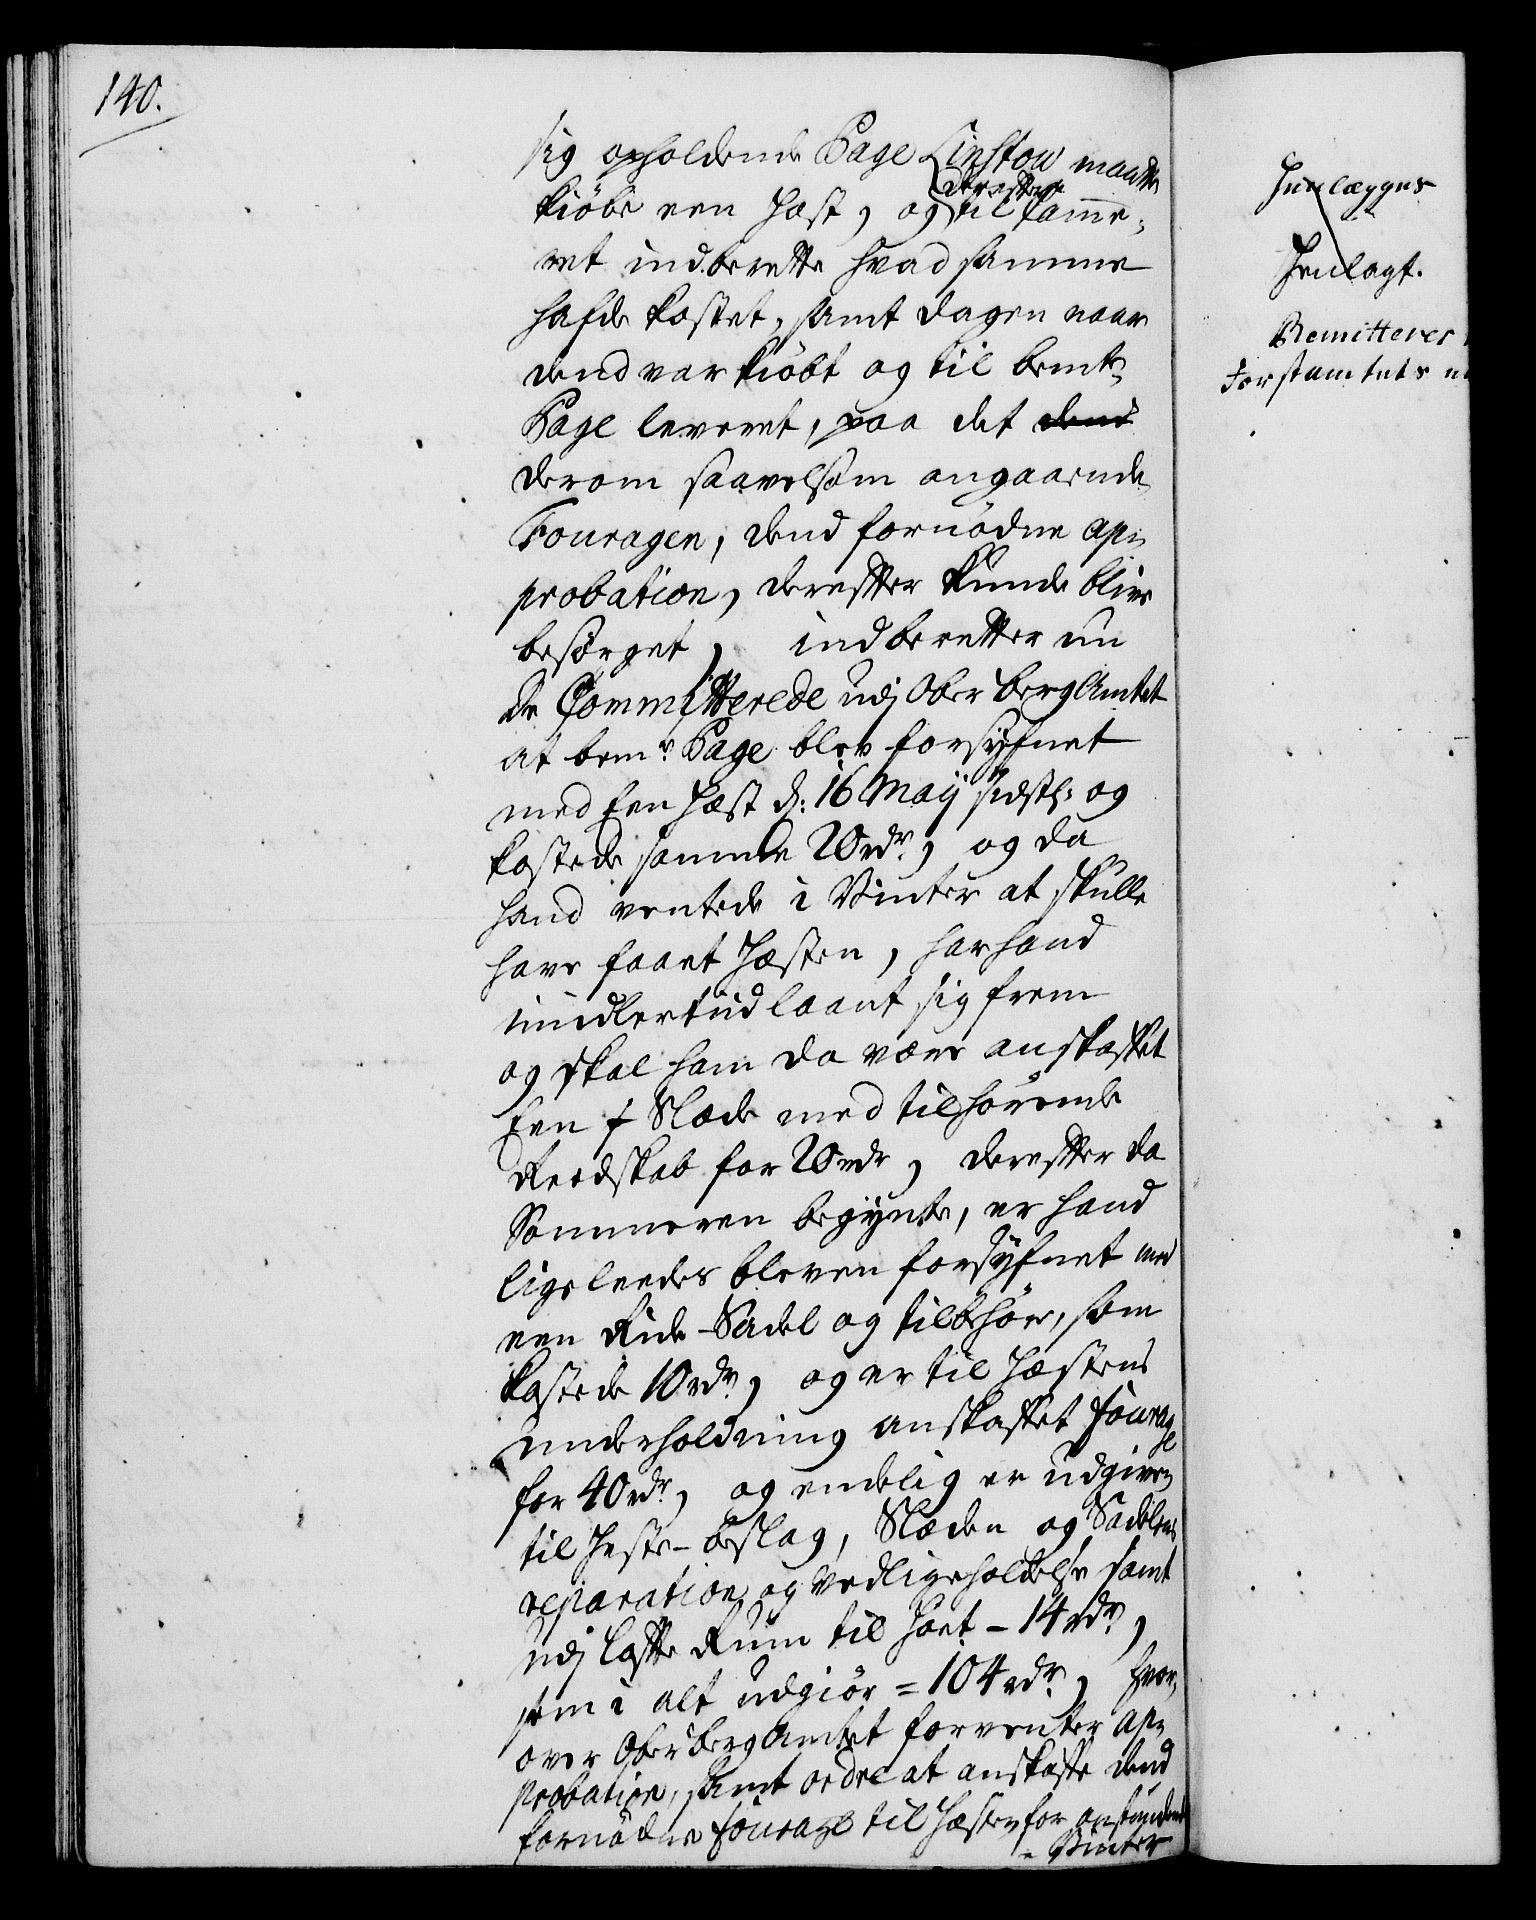 140.
sig opholdende Page Linstow maatte
kiøbe een Hæst, og derefter til Camme-
ret indberette hvad samme
hafde kostet, samt dagen naar
dend var kiøbt og til bemte
Page leveret, paa det dend
derom saavelsom angaaende
Fouragen, dend fornødne ap-
probation, derefter kunde blive
besørget, indberetter nu
de Committerede udj Ober berg Amtet
at bemte Page blev forsÿfnet
med Een Hæst d: 16 Maij sidstl: og
kostede samme 20 rdr, og da
hand ventede i Vinter at skulle
have faaet Hæsten, har hand
imidlertiid laant sig frem
og skal ham da være anskaffet
Een Slæde med tilhørende
Reedskab for 20 rdr, derefter da
Sommeren begÿnte, er hand
ligeleedes bleven forsÿfnet med
een Ride-Sadel og tilbehør, som
kostede 10 rdr, og er til Hæstens
underholdning anskaffet Fourage
for 40 rdr, og endelig er udgiven
til Heste-beslag, Slæden og Sadelens
reparation og Vedligeholdelse samt
udj Lofte Rum til Høet - 14 rdr,
som i alt udgiør = 104 rdr, hvor-
over Ober berg Amtet forventer ap-
probation, samt ordre at anskaffe dend
fornødne Fourage til Hæsten for anstundende
Vinter
Henlægges
Henlagt.
Remitteres
Forstamtets